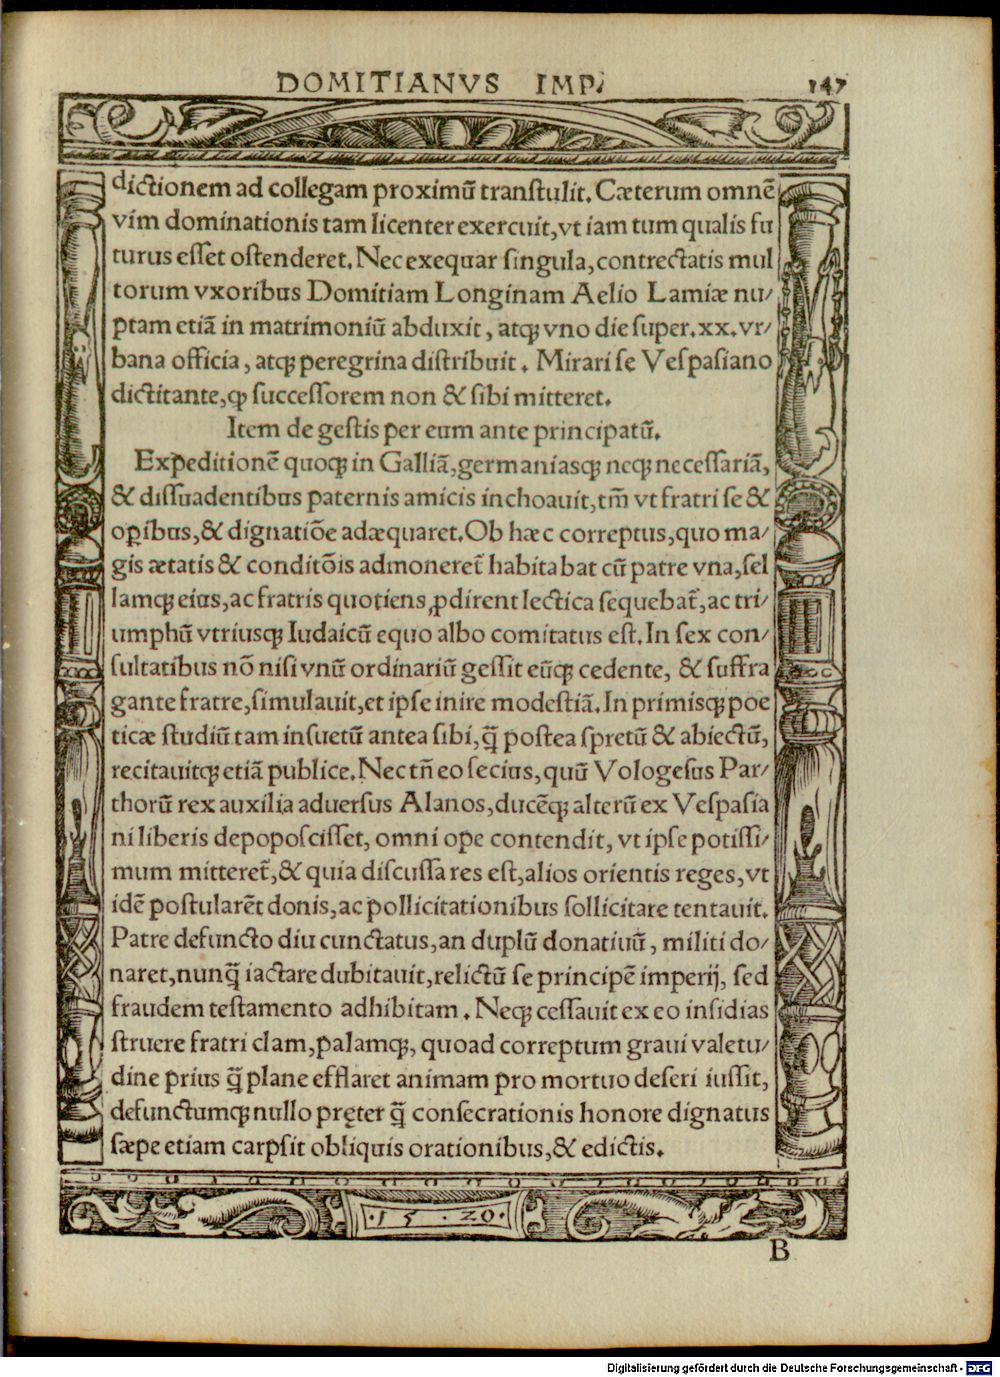 DOMITIANVS IMP.
147
dictionem ad collegam proximũ tranſtulit. Cæterum omnẽ
vim dominationis tam licenter exercuit, vt iam tum qualis fu
turus eſſet oſtenderet. Nec exequar ſingula, contrectatis mul
torum vxoribus Domitiam Longinam Aelio Lamiæ nu/
ptam etiã in matrimoniũ abduxit, atqꝫ vno die ſuper .xx. vr/
bana officia, atqꝫ peregrina diſtribuit. Mirari ſe Veſpaſiano
dictitante, ꝙ ſucceſſorem non & ſibi mitteret.
Item de geſtis per eum ante principatũ.
Expeditionẽ quoqꝫ in Galliã, germaniasqꝫ neqꝫ neceſſariã,
& diſſuadentibus paternis amicis inchoauit, tm̃ vt fratri ſe &
opibus, & dignatiõe adæquaret. Ob hæc correptus, quo ma/
gis ætatis & conditõis admoneret̃ habitabat cũ patre vna, ſel
lamqꝫ eius, ac fratris quotiens ꝓdirent lectica ſequebat̃, ac tri/
umphũ vtriusqꝫ Iudaicũ equo albo comitatus eſt. In ſex con/
ſultatibus nõ niſi vnũ ordinariũ geſſit eũqꝫ cedente, & ſuffra
gante fratre, ſimulauit, et ipſe inire modeſtiã. In primisqꝫ poe
ticæ ſtudiũ tam inſuetũ antea ſibi, q̃ poſtea ſpretũ & abiectũ,
recitauitqꝫ etiã publice. Nec tñ eo ſecius, quũ Vologeſus Par/
thorũ rex auxilia aduerſus Alanos, ducẽqꝫ alterũ ex Veſpaſia
ni liberis depopoſciſſet, omni ope contendit, vt ipſe potiſſi/
mum mitteret̃, & quia diſcuſſa res eſt, alios orientis reges, vt
idẽ poſtularẽt donis, ac pollicitationibus ſollicitare tentauit.
Patre defuncto diu cunctatus, an duplũ donatiuũ, militi do/
naret, nunq̃ iactare dubitauit, relictũ ſe principẽ imperij, ſed
fraudem teſtamento adhibitam. Neqꝫ ceſſauit ex eo inſidias
ſtruere fratri clam, palamqꝫ, quoad correptum graui valetu/
dine prius q̃ plane efflaret animam pro mortuo deſeri iuſſit,
defunctumqꝫ nullo pręter q̃ conſecrationis honore dignatus
ſæpe etiam carpſit obliquis orationibus, & edictis.
·15·20·
B
Digitalisierung gefördert durch die Deutsche Forschungsgemeinschaft - DFG